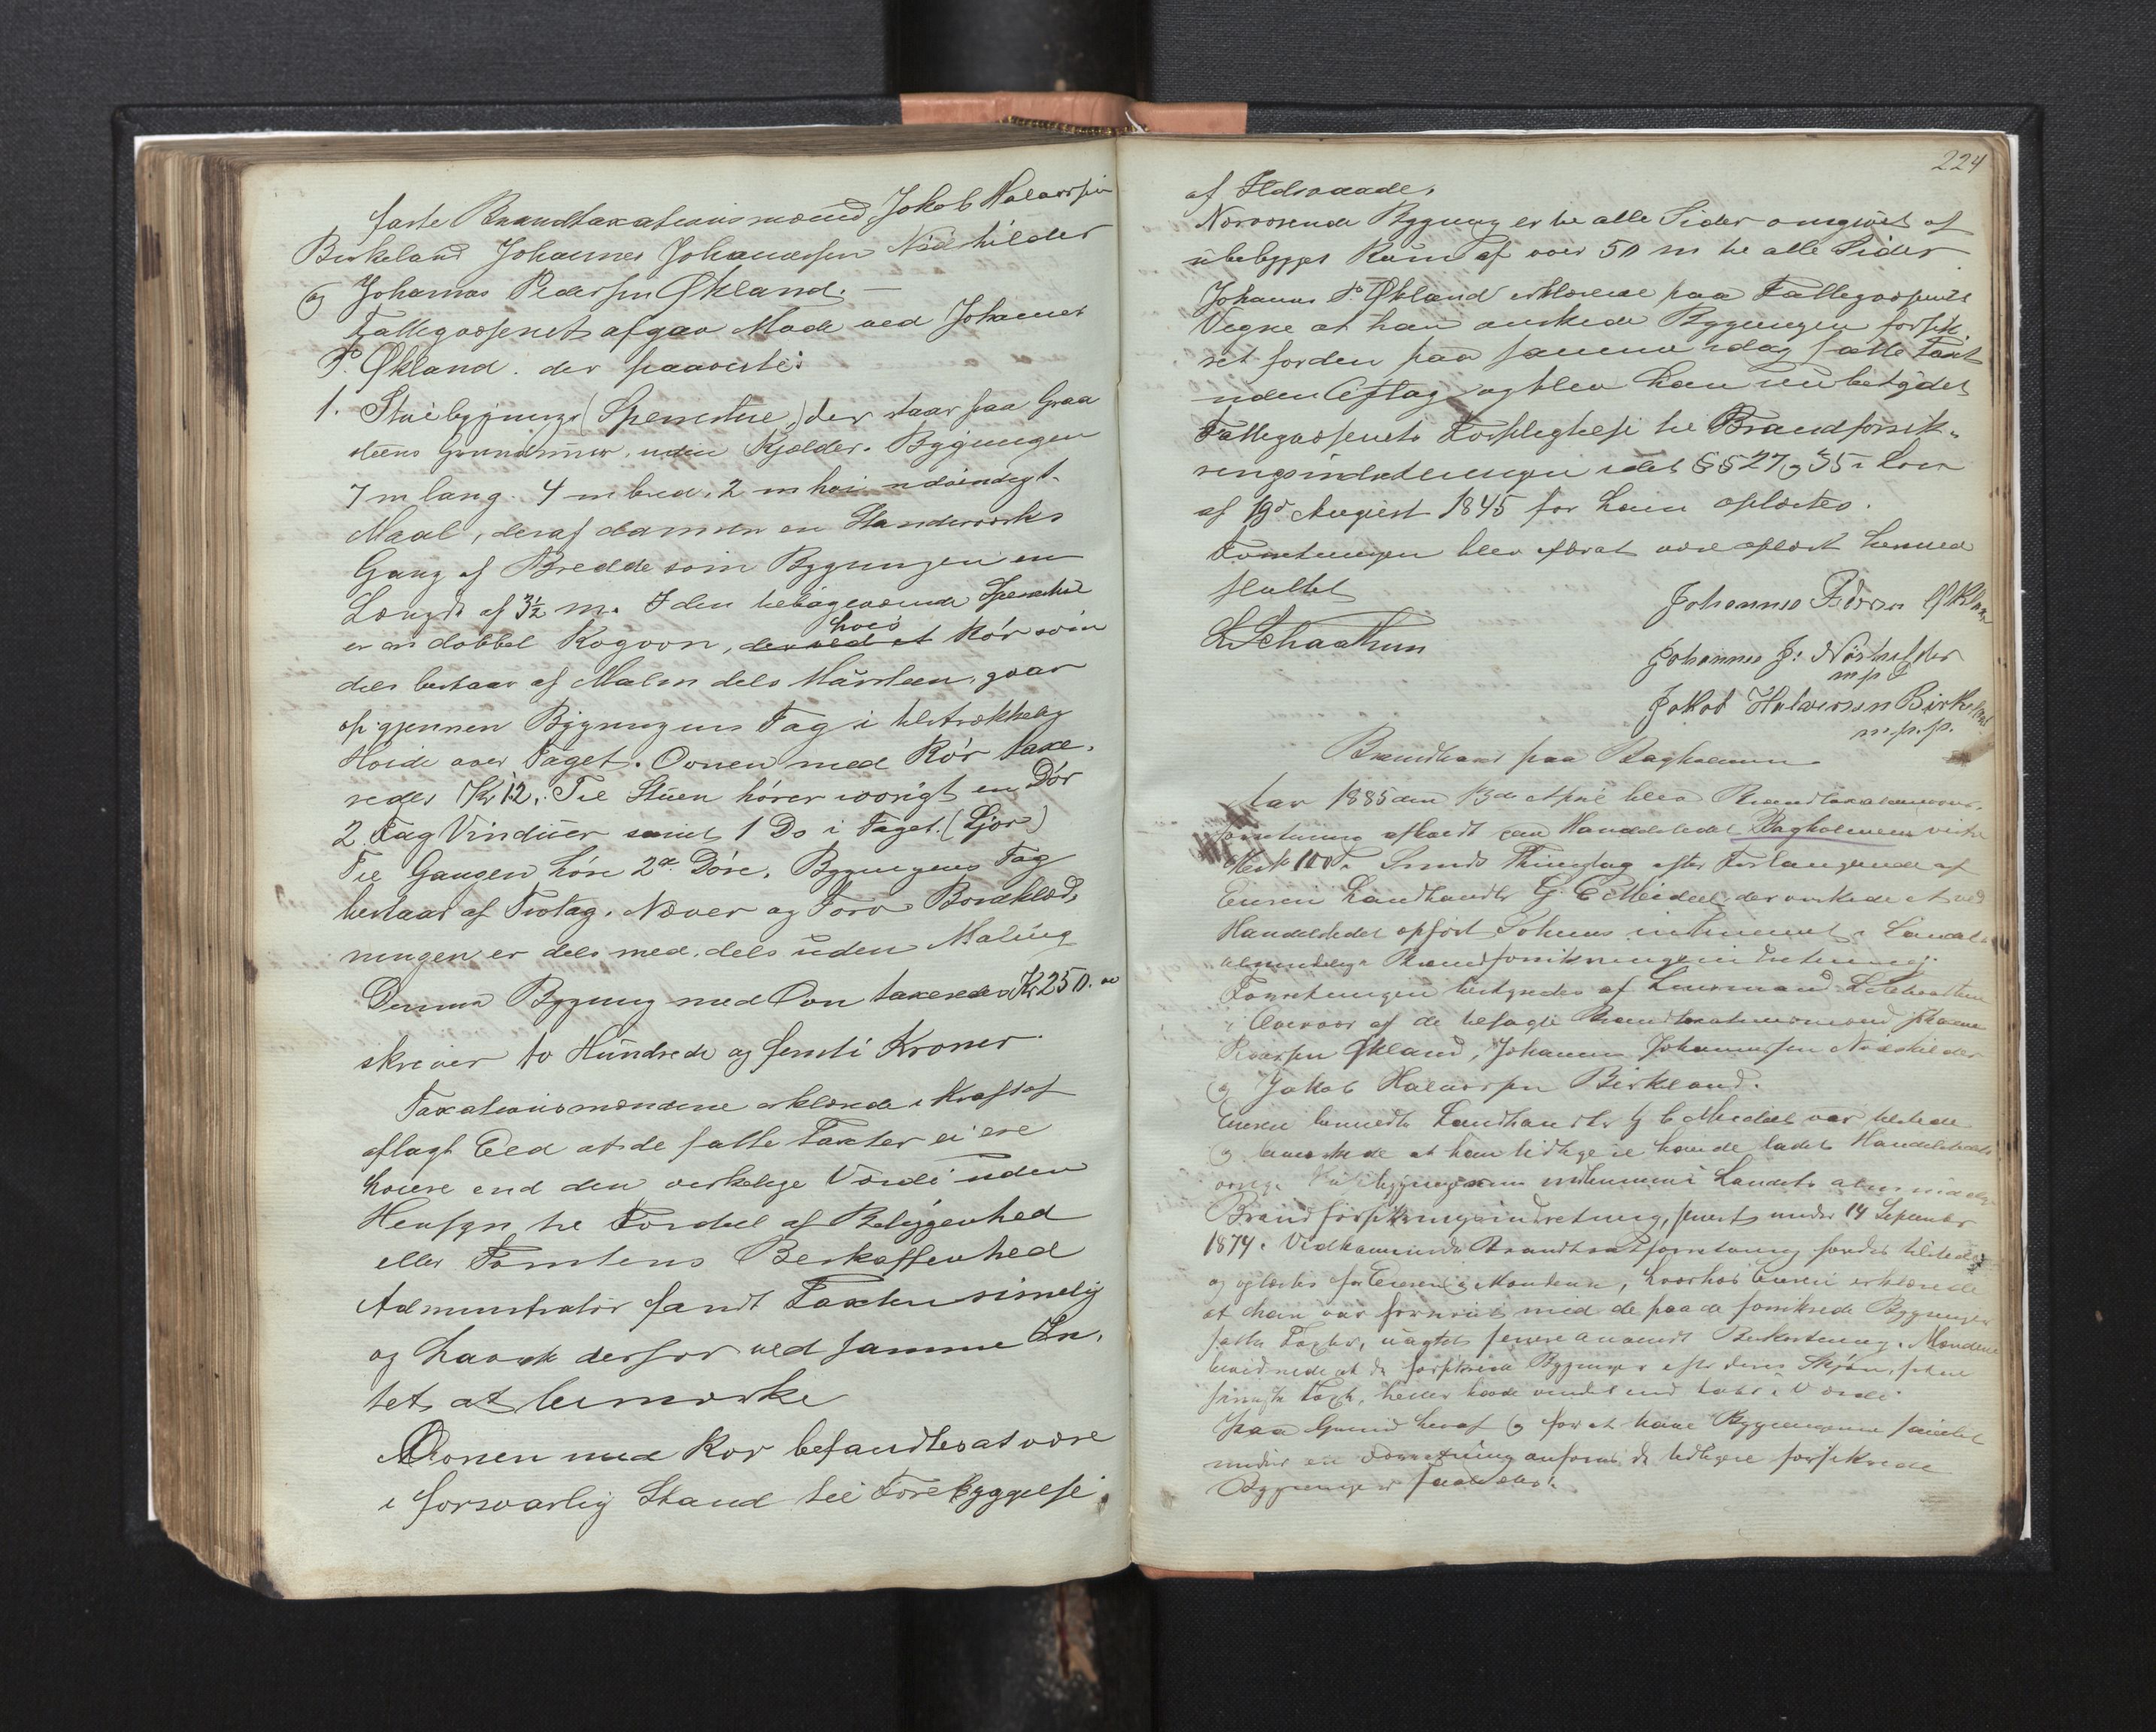 faste Brandtaxationsmænd Jokob Halvorsen
Birkeland Johannes Johannessen Nødskilder
og Johannes Pedersen Økland. —
Fattigvæsenet afgav Møde ved Johannes
P. Økland. der paaviste:
1. Stuebygning (Spernstue) der staar paa Graa
steens Grundmur, uden Kjælder. Bygningen
7 m lang. 4 m bred, 2 m høi udvendigt
Maal, deraf dannes en Standværks
Gang af Bredde som Bygningen en
Længde af 3½ m. I den tilbageværende
er en dobbel Kogovn, der ved et hvis Rør som
dels bestaar af Malm dels Mursteen, gaar
op gjennem Bygningens Tag i tilstrækkelig
Høide over Taget. Ovnen med Rør taxe-
redes Kr 12. Til Stuen hører iøvrigt en Dør
2 Fag Vinduer samt 1 Do i Taget. (Ljor)
Til Gangen høre 2de Døre. Bygningens Tag
bestaar af Trotag. Næver og Torv Bordklæd-
ningen er dels med, dels uden Maling
Denne Bygning med Ovn taxeredes Kr 250.00
skriver to Hundrede og femti Kroner
Taxationsmændene erklærede i Kraft af
aflagt Eed at de satte Taxter ei ere
høiere end den virkelige Værdi uden
Hensyn til Fordeel af Beliggenhed
eller Tomtens Beskaffenhed
Administrator fandt Taxten rimelig
og havde derfor ved samme In-
tet at bemærke
Ovnen med Rør befandtes at være
i forsvarlig Stand til Forebyggelse
224
af Ildsvaade.
Nærværende Bygning er til alle Sider omgivet af
ubebygget Rum af over 50 m til alle Sider
Johannes P. Økland erklærede paa Fattigvæsenets
Vegne at han ønskede Bygningen forsik-
ret for den paa samme idag satte Taxt
uden Aftag og blev han nu betydet
Fattigvæsenets Forpligtelse til Brandforsik-
ringsindretningen idet §§ 27 og 35 i Lov
af 19de August 1845 for ham oplæstes.
Forretningen blev efterat være oplæst hermed
sluttet
L Schaathun
Johannes Pedersen Økland
Johannes J. Nøskelder
m p P
Jakob Halvorsen Birkeland
m.p.p.
Brandtaxt paa Bagholmen
Aar 1885 den 13de April blev Brandtaxations-
forretning afholdt paa Handelsstedet Bagholmen
Thinglag efter Forlangende af
Eieren Landhandler G. C Meidell, der ønskede et ved
Handelsstedet opført indlemmet i Landets
almindelige Brandforsikringsindretning.
Forretningen bestyredes af Lensmand L Schaathun
i Overvær af de befaste Brandtaxationsmænd Johannes
Pedersen Økland, Johannes Johannessen Nødskilder
og Jakob Halvorsen Birkeland.
Eieren bemeldte Landhandler G C Meidell var tilstede
og bemærkede at han tidligere havde ladet Handelsstedets
øvrige Bygninger indlemme i Landets almindelige
Brandforsikringsindretning, senest under 14 September
1874. Vedkommende Brandtaxtforretning fandtes tilstede
og oplæstes for Eieren og Mændene, hvorhos Eieren erklærede
at han var fornøiet med de paa de forsikrede Bygninger
satte Taxter, uagtet senere anvendt Bekostning. Mændene
formente at de forsikrede Bygninger efter deres Skjøn, siden
seneste Taxt, heller havde vundet end tabt i Værdi
Paa Grund heraf og for at have Bygningerne samlet
under en Forretning anføres de tidligere forsikrede
Bygninger saaledes: